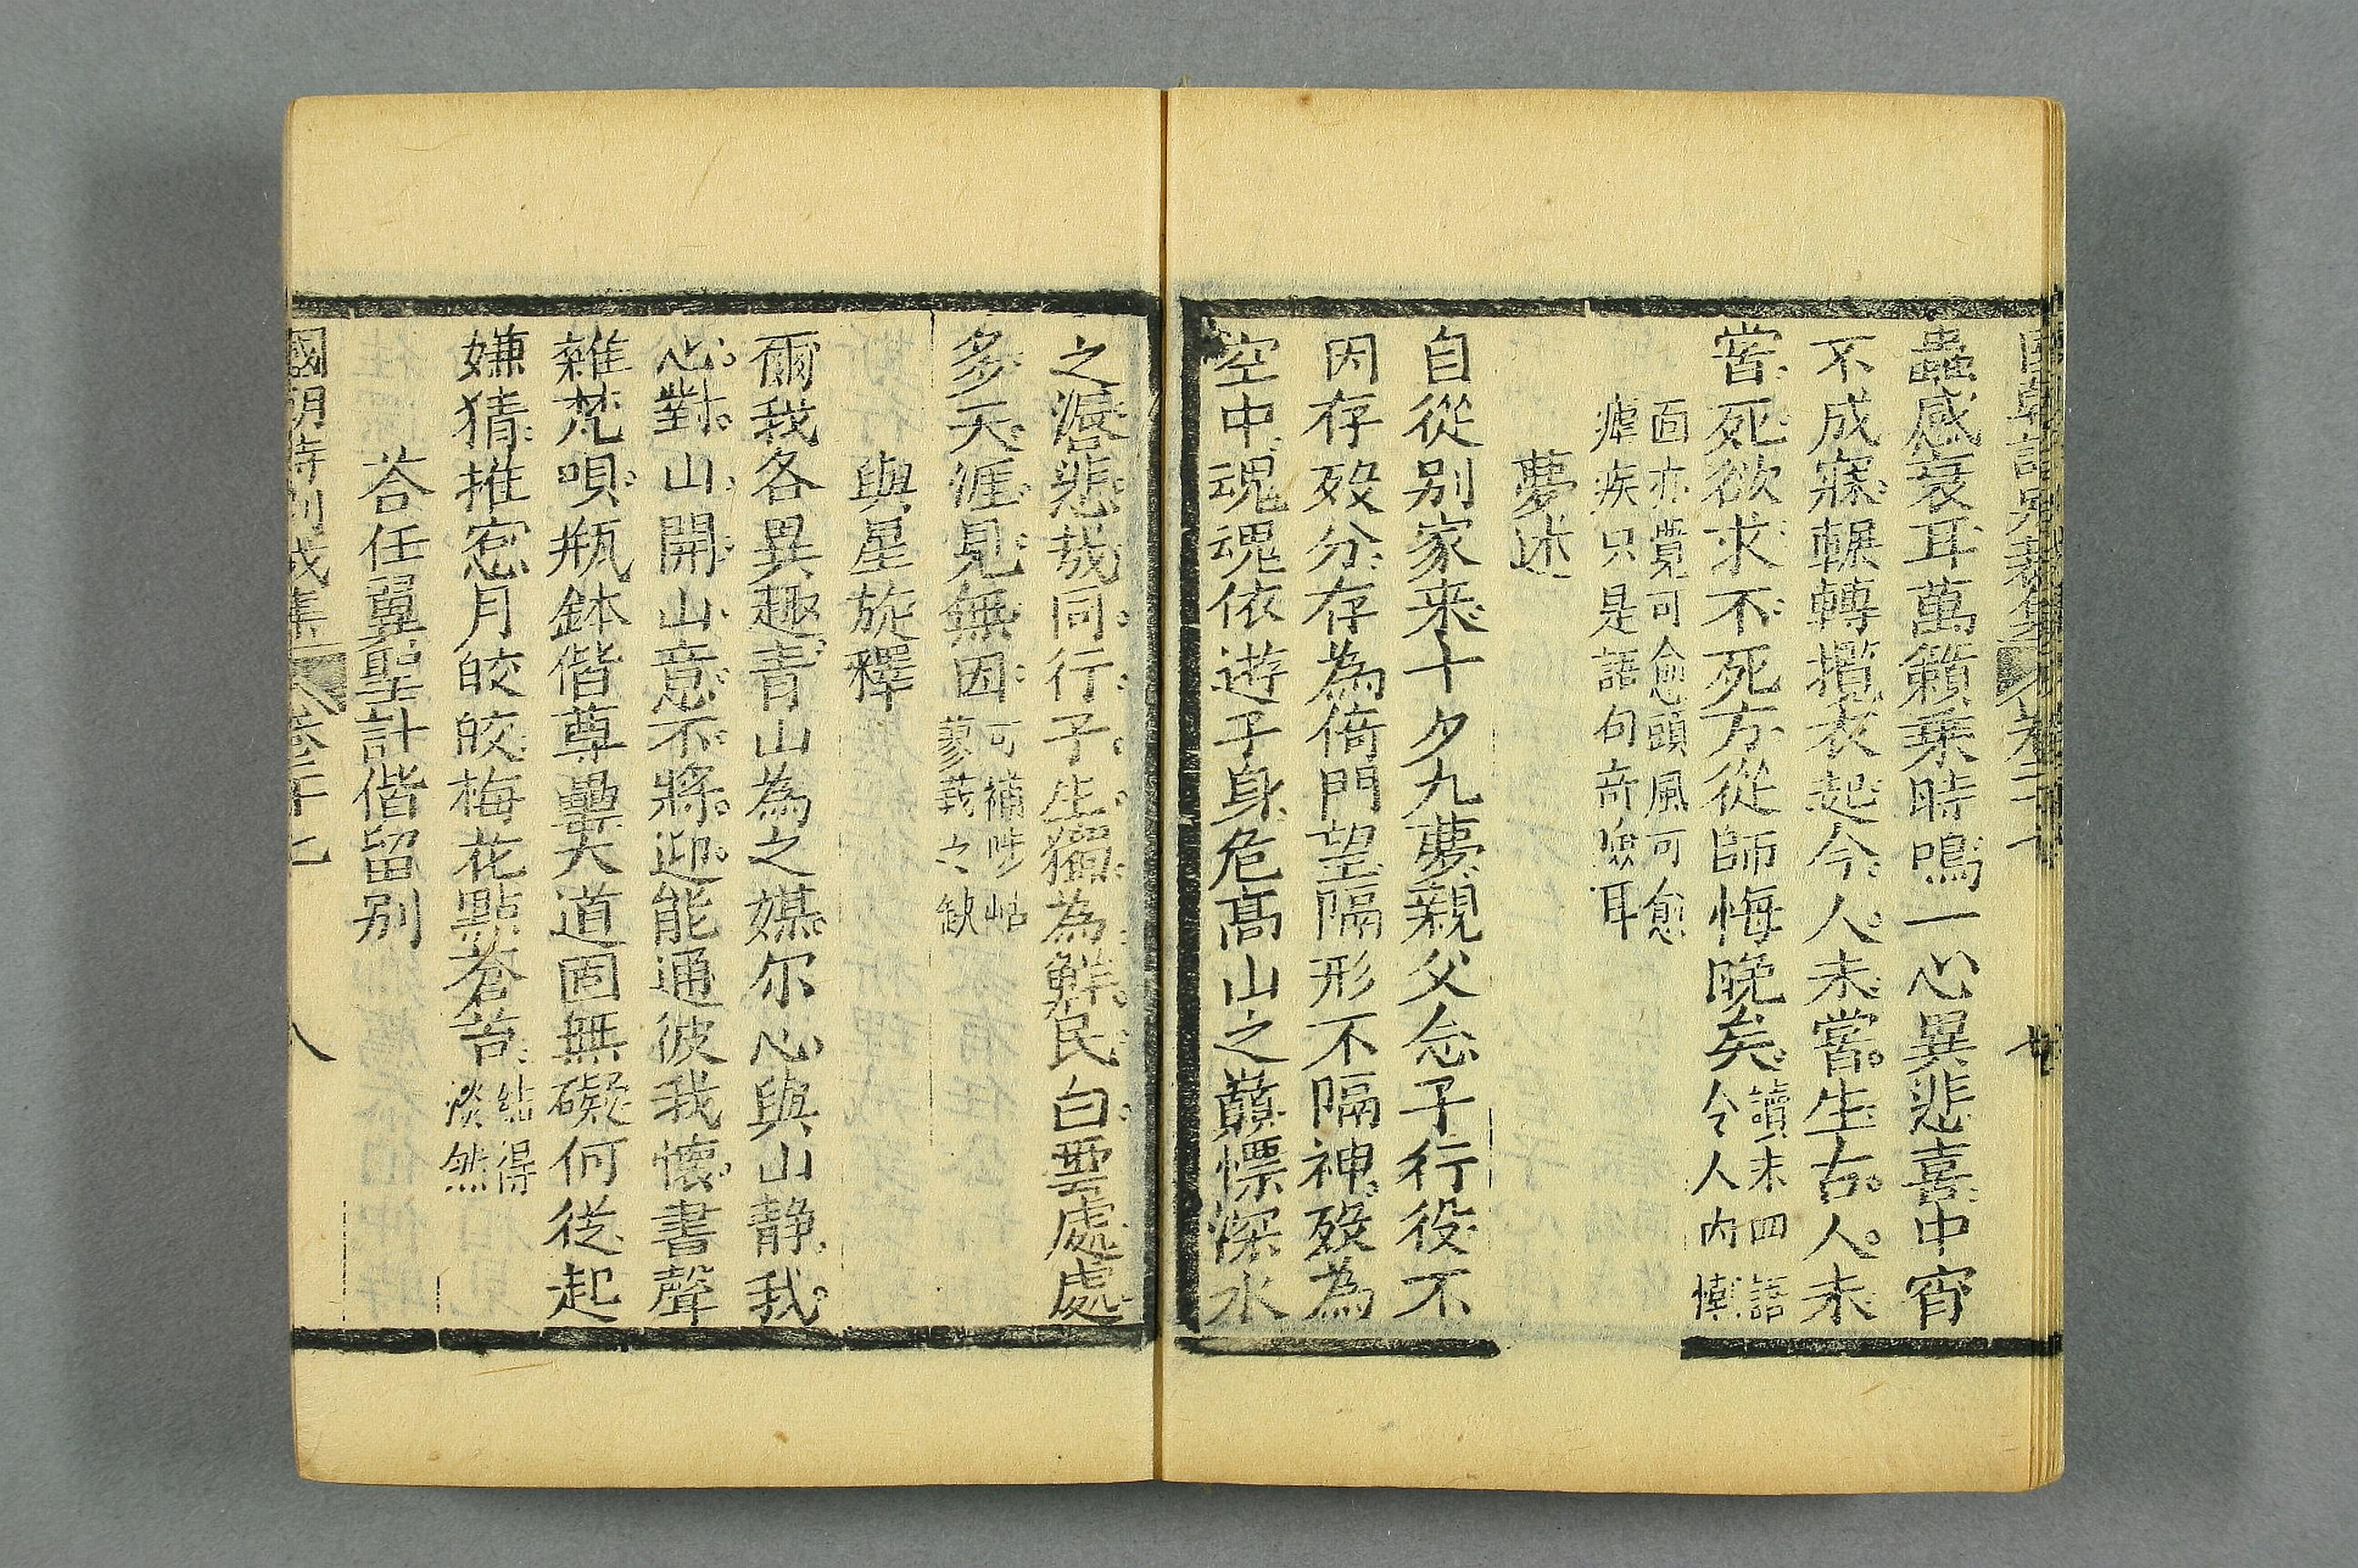 蟲感衰耳萬籟乗時鳴一心異悲喜中宵
不成寐輾轉攬衣起今人未嘗生古人未
嘗死欲求不死方從師悔晚矣讀末四語
令人內慚
面亦覺可愈頭風可愈
瘧疾只是語句奇奧耳
夢述
自從别家来十夕九夢親父念子行役不
因存殁分存為倚門望隔形不隔神殁為
空中魂魂依遊子身危髙山之蘋慓深水
之湄悲哉同行子生獨為鮮民白雲處處
多天涯見無因可補陟岵
蓼莪之缺
與星旋釋
爾我各異趣青山為之媒尔心與山静我
心對山開山意不將迎能通彼我懷書聲
雜梵唄瓶鉢偕尊罍大道固無礙何從起
嫌猜推窓月皎皎梅花點蒼苔結得
淡然
荅任翼聖計偕留别
國朝詩别裁集 卷二十七
八